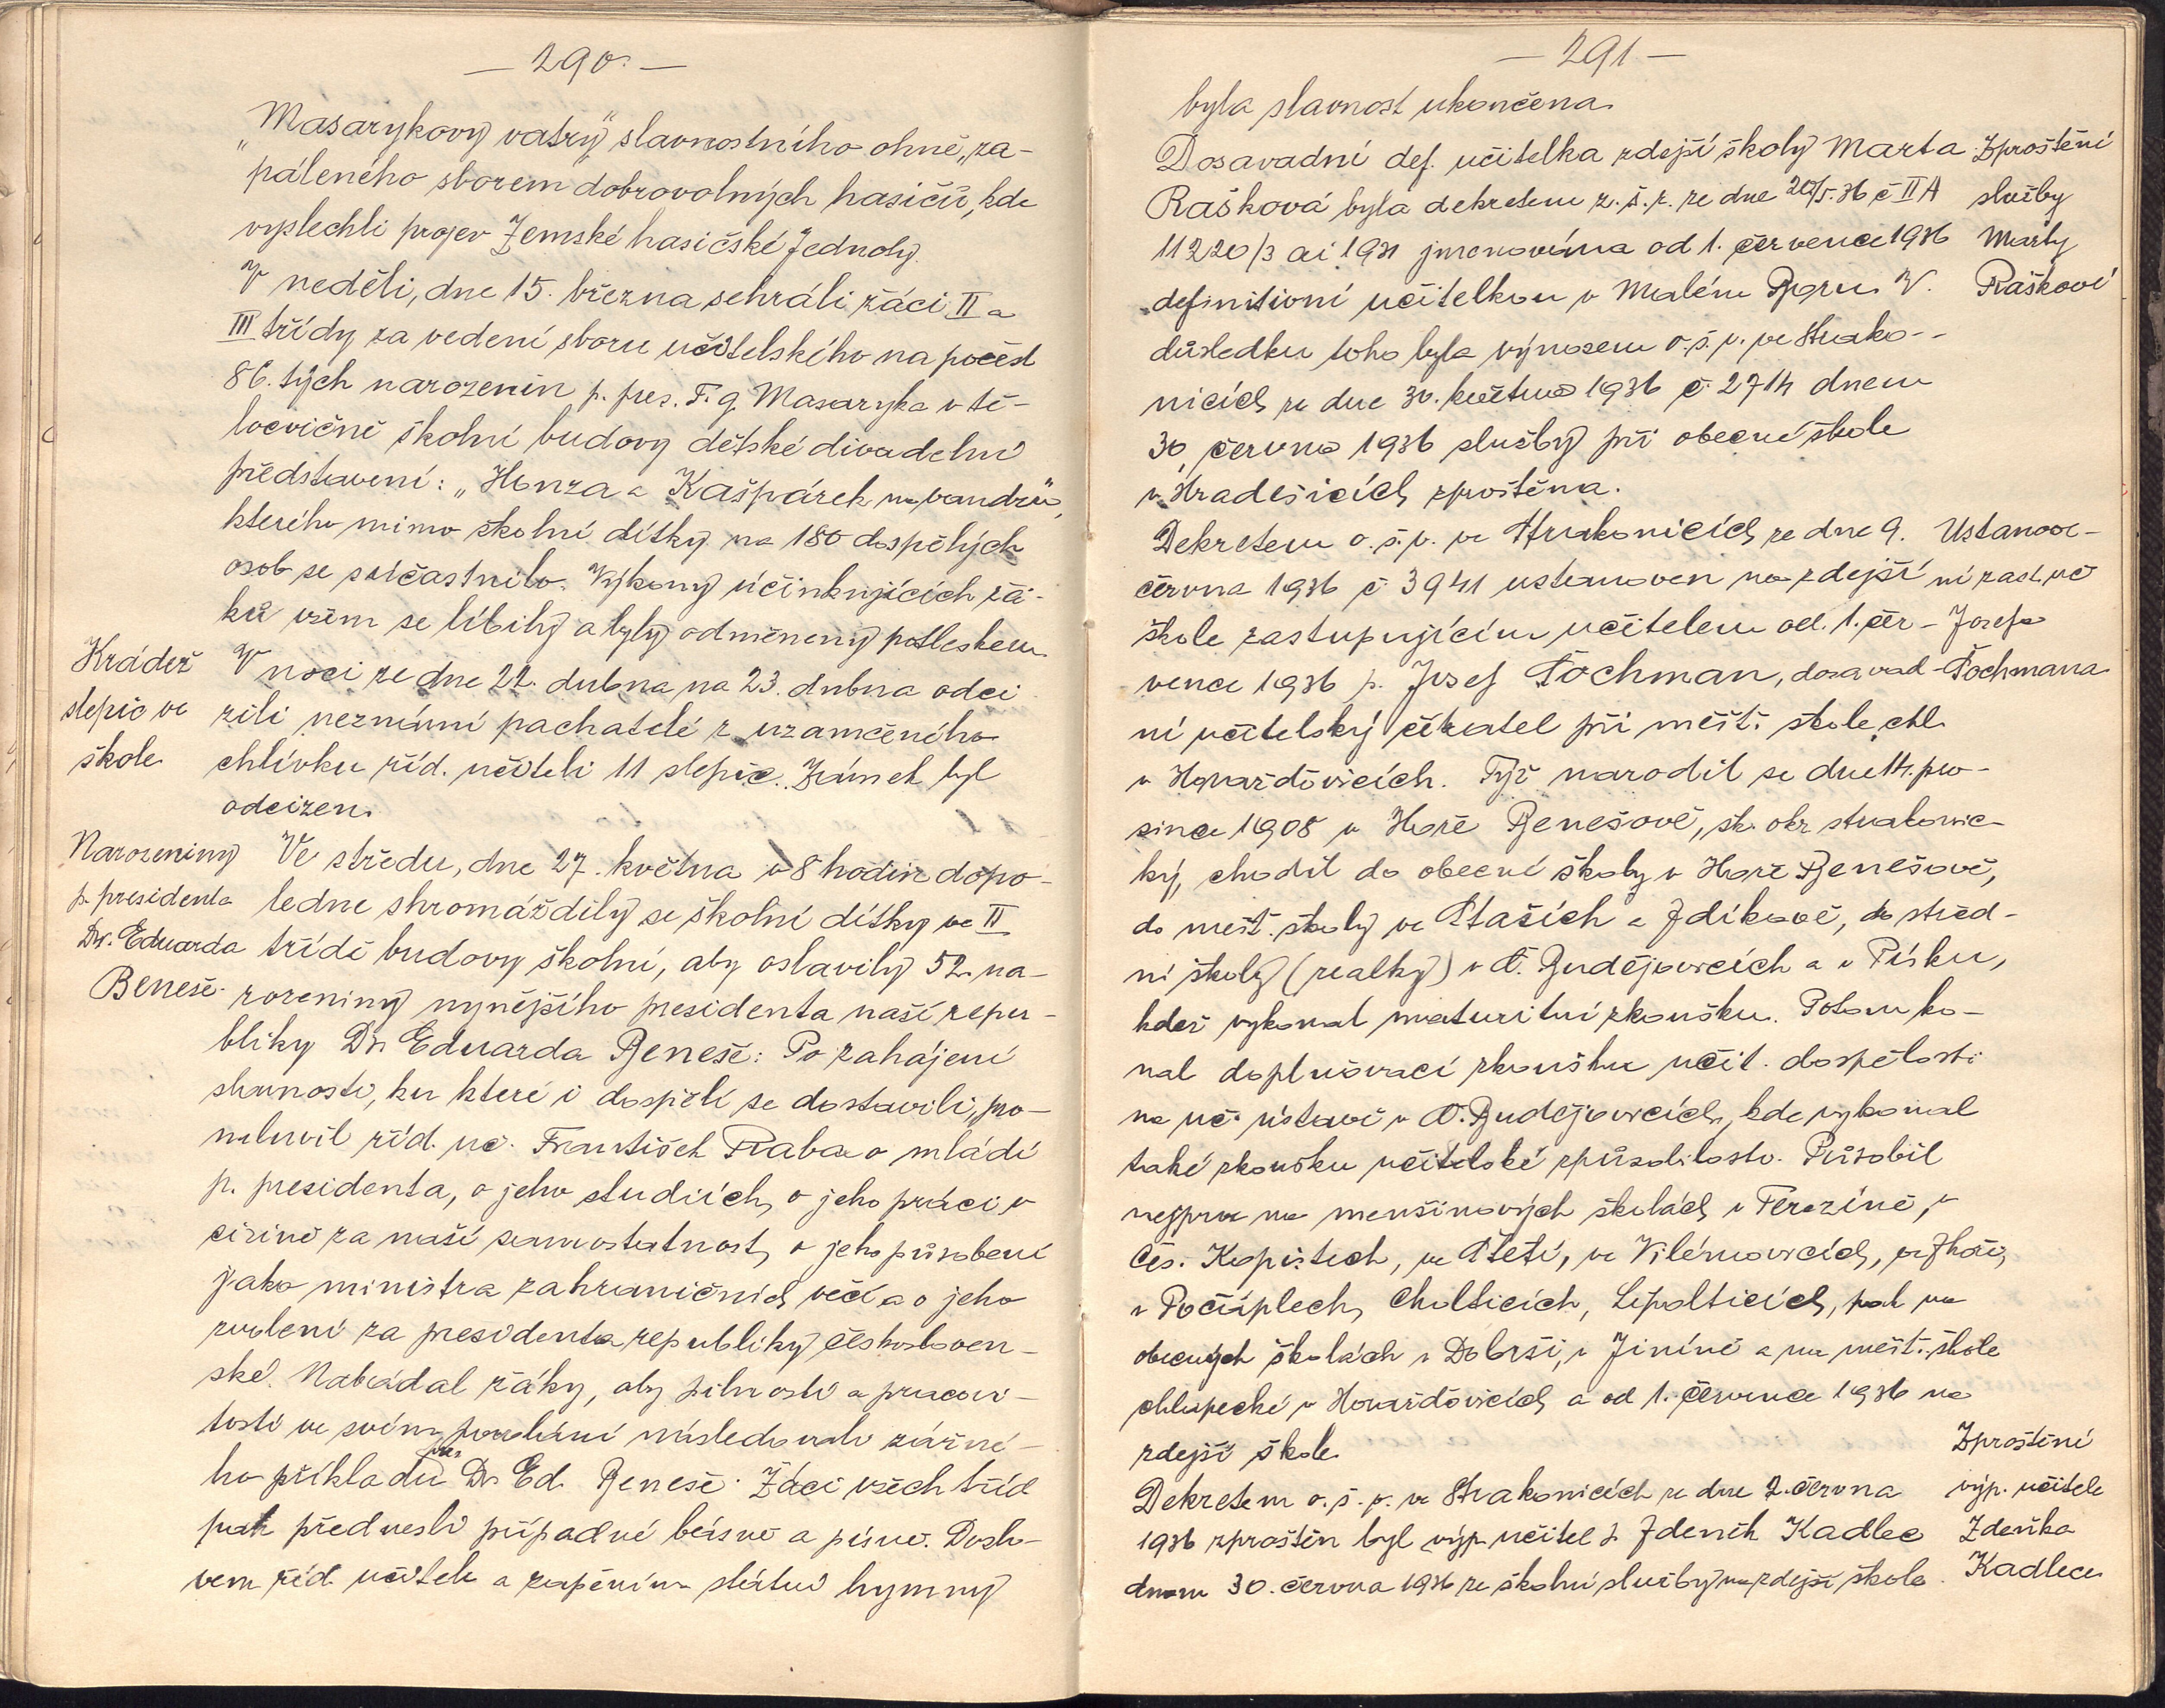 — 290. —
„Masarykovy vatry“ slavnostního ohně, za-
páleného sborem dobrovolných hasičů, kde
vyslechli projev Zemské hasičské Jednoty.
V neděli, dne 15. března sehráli žáci II a
III třídy za vedení sboru učitelského na počest
86. tých narozenin p. pres. T. G. Masaryka v tě-
locvičně školní budovy dětské divadelní
představení: „Honza a Kašpárek na vandru“,
kterého mimo školní dítky na 180 dospělých
osob se súčastnilo. Výkony účinkujících žá-
ků všem se líbily a byly odměněny potleskem.
Krádež
slepic ve
škole
V noci ze dne 22. dubna na 23. dubna odci
zili neznámí pachatelé z uzamčeného
chlívku říd. učiteli 11 slepic. Zámek byl
odcizen.
Narozeniny
p. presidenta
Dr. Eduarda
Beneše.
Ve středu, dne 27. května v 8 hodin dopo-
ledne shromáždily se školní dítky ve II
třídě budovy školní, aby oslavily 52. na-
rozeniny nynějšího presidenta naší repu-
bliky Dr. Eduarda Beneše: Po zahájení
slavnosti, ku které i dospělí se dostavili, pro-
mluvil říd. uč. František Raba o mládí
p. presidenta, o jeho studiích, o jeho práci v
cizině za naší samostatnost, o jeho působení
jako ministra zahraničních věcí a o jeho
zvolení za presidenta republiky českosloven-
ské. Nabádal žáky, aby pilností a pracovi-
tostí ve svém povolání následovali zářné-
ho příkladu Dr. Ed. Beneše. Žáci všech tříd
pak přednesli případné básně a písně. Doslo-
vem říd. učitele a zapěním státní hymny
— 291 —
byla slavnost ukončena.
Zproštění
služby
Marty
Raškové
Dosavadní def. učitelka zdejší školy Marta
Rašková byla dekretem z. š. r. ze dne 20/5. 36 č II A
11220/3 ai 1931 jmenována od 1. července 1936
definitivní učitelkou v Malém Boru. V
důsledku toho byla výnosem o. š. v. ve Strako-
nicích ze dne 30. května 1936 č. 2714 dnem
30. června 1936 služby při obecné škole
v Hradešicích zproštěna.
Ustanove-
ní zast. uč
Josefa
Tochmana
Dekretem o. š. v. ve Strakonicích ze dne 9.
června 1936 č 3941 ustanoven na zdejší
škole zastupujícím učitelem od 1. čer-
vence 1936 p. Josef Tochman, dosavad-
ní učitelský čekatel při měšť. škole chl.
v Horažďovicích. Týž narodil se dne 14. pro-
since 1908 v Hoře Benešově, šk. okr strakonic-
ký, chodil do obecné školy v Hoře Benešově,
do měšť. školy ve Staších a Zdíkově, do střed-
ní školy (realky) v Č. Budějovicích a v Písku,
kdež vykonal maturitní zkoušku. Potom ko-
nal doplňovací zkoušku učit. dospělosti
na uč. ústavě v Č. Budějovicích, kde vykonal
také zkoušku učitelské způsobilosti. Působil
nejprve na menšinových školách v Terezíně, v
Čes. Kopistech, ve Štětí, ve Vilémovicích, ve Zhoři,
v Počáplech, Cholticích, Lipolticích, pak na
obecných školách v Dobrši, v Jiníně a na měšť. škole
chlapecké v Horažďovicích a od 1. července 1936 na
zdejší škole.
Zproštění
výp. učitele
Zdeňka
Kadlece
Dekretem o. š. v. ve Strakonicích ze dne 2. června
1936 zproštěn byl výp. učitel p. Zdeněk Kadlec
dnem 30. června 1936 ze školní služby na zdejší škole.